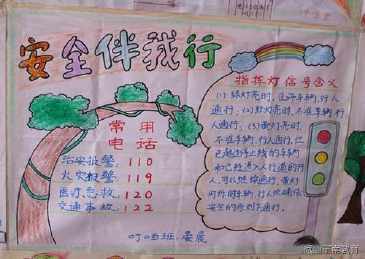 安全伴我行
常用
电话
治安报警: 110
火灾报警: 119
医疗急救: 120
交通事故: 122
叮当班: 晏晨
指挥灯信号含义
(1)绿灯亮时,准许车辆、行人
通行,(2)红灯亮时,不准车辆、行
人通行,(3)黄灯亮时,
不准车辆、行人通行,但
已越过停止线的车辆
和已经进入人行道的行
人,可以继续通行,黄灯
闪烁时车辆、行人须确保
安全的原则下通行。